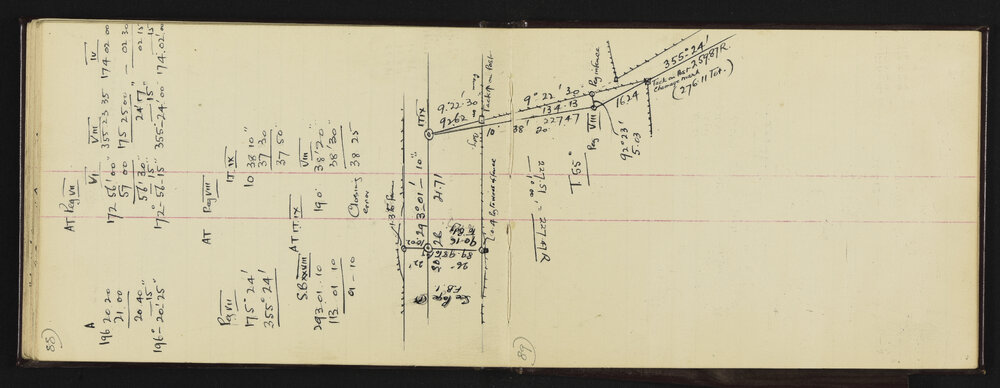 88
AT Peg VII
A VI VIII IV
196 20 20 172 56' 00" 355 23 35 174 02 00
21 00 57 00 175 25 00 02 30
20.40 56' 30" 24' 17" 02 15
15" 15" 15" 15"
196° 20' 25" 172° 56' 15" 355° 24' 00" 174° 02' 00"
AT Peg VIII
Peg VII IT IX
175° 24' 10 38 10
355° 24' 37 30
37 50
AT IT IX
S.B XXVIII VIII
293.01.10 190° 38' 20"
113 01 10 38' 30"
01 10 38 25
Closing error
IT IX
9° 22' 30"
9262
293° 01' 10"
21.71
See Page
F.B. 1
90.16
89.98
89
Tack on Post
9° 22' 30"
134.13
227.47
10° 38' 20"
Peg VIII
Peg in fence
1624
355° 24'
Tack on Post 25987 R.
chainage mark
(276.11 Tot.)
92° 23'
5.03
T 55°
227.51
= 227.47 R